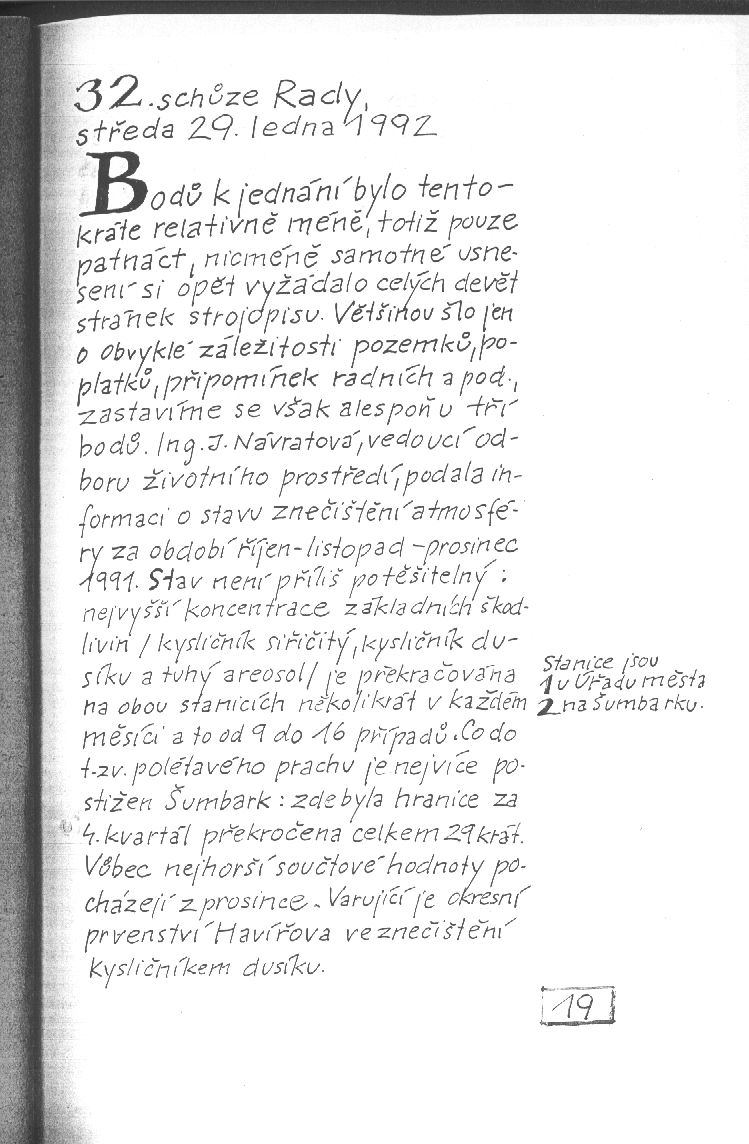 32. schůze Rady,
středa 29. ledna 1992
Bodů k jednání bylo tento-
kráte relativně méně, totiž pouze
patnáct, nicméně samotné usne-
sení si opět vyžádalo celých devět
stránek strojopisu. Většinou šlo jen
o obvyklé záležitosti pozemků, po-
platků, připomínek radních a pod.,
zastavíme se však alespoň u tří
bodů. Ing. J. Návratová, vedoucí od-
boru životního prostředí, podala in-
formaci o stavu znečištění atmosfé-
ry za období říjen-listopad-prosinec
1991. Stav není příliš potěšitelný:
nejvyšší koncentrace základních škod-
livin /kysličník siřičitý, kysličník du-
síku a tuhý areosol/ je překračována
na obou stanicích několikrát v každém
měsíci a to od 9 do 16 případů. Co do
t.zv. polétavého prachu je nejvíce po-
stižen Šumbark: zde byla hranice za
4. kvartál překročena celkem 29krát.
Vůbec nejhorší součtové hodnoty po-
cházejí z prosince. Varující je okresní
prvenství Havířova ve znečištění
kysličníkem dusíku.
Stanice jsou
1 v Úřadu města
2 na Šumbarku.
19